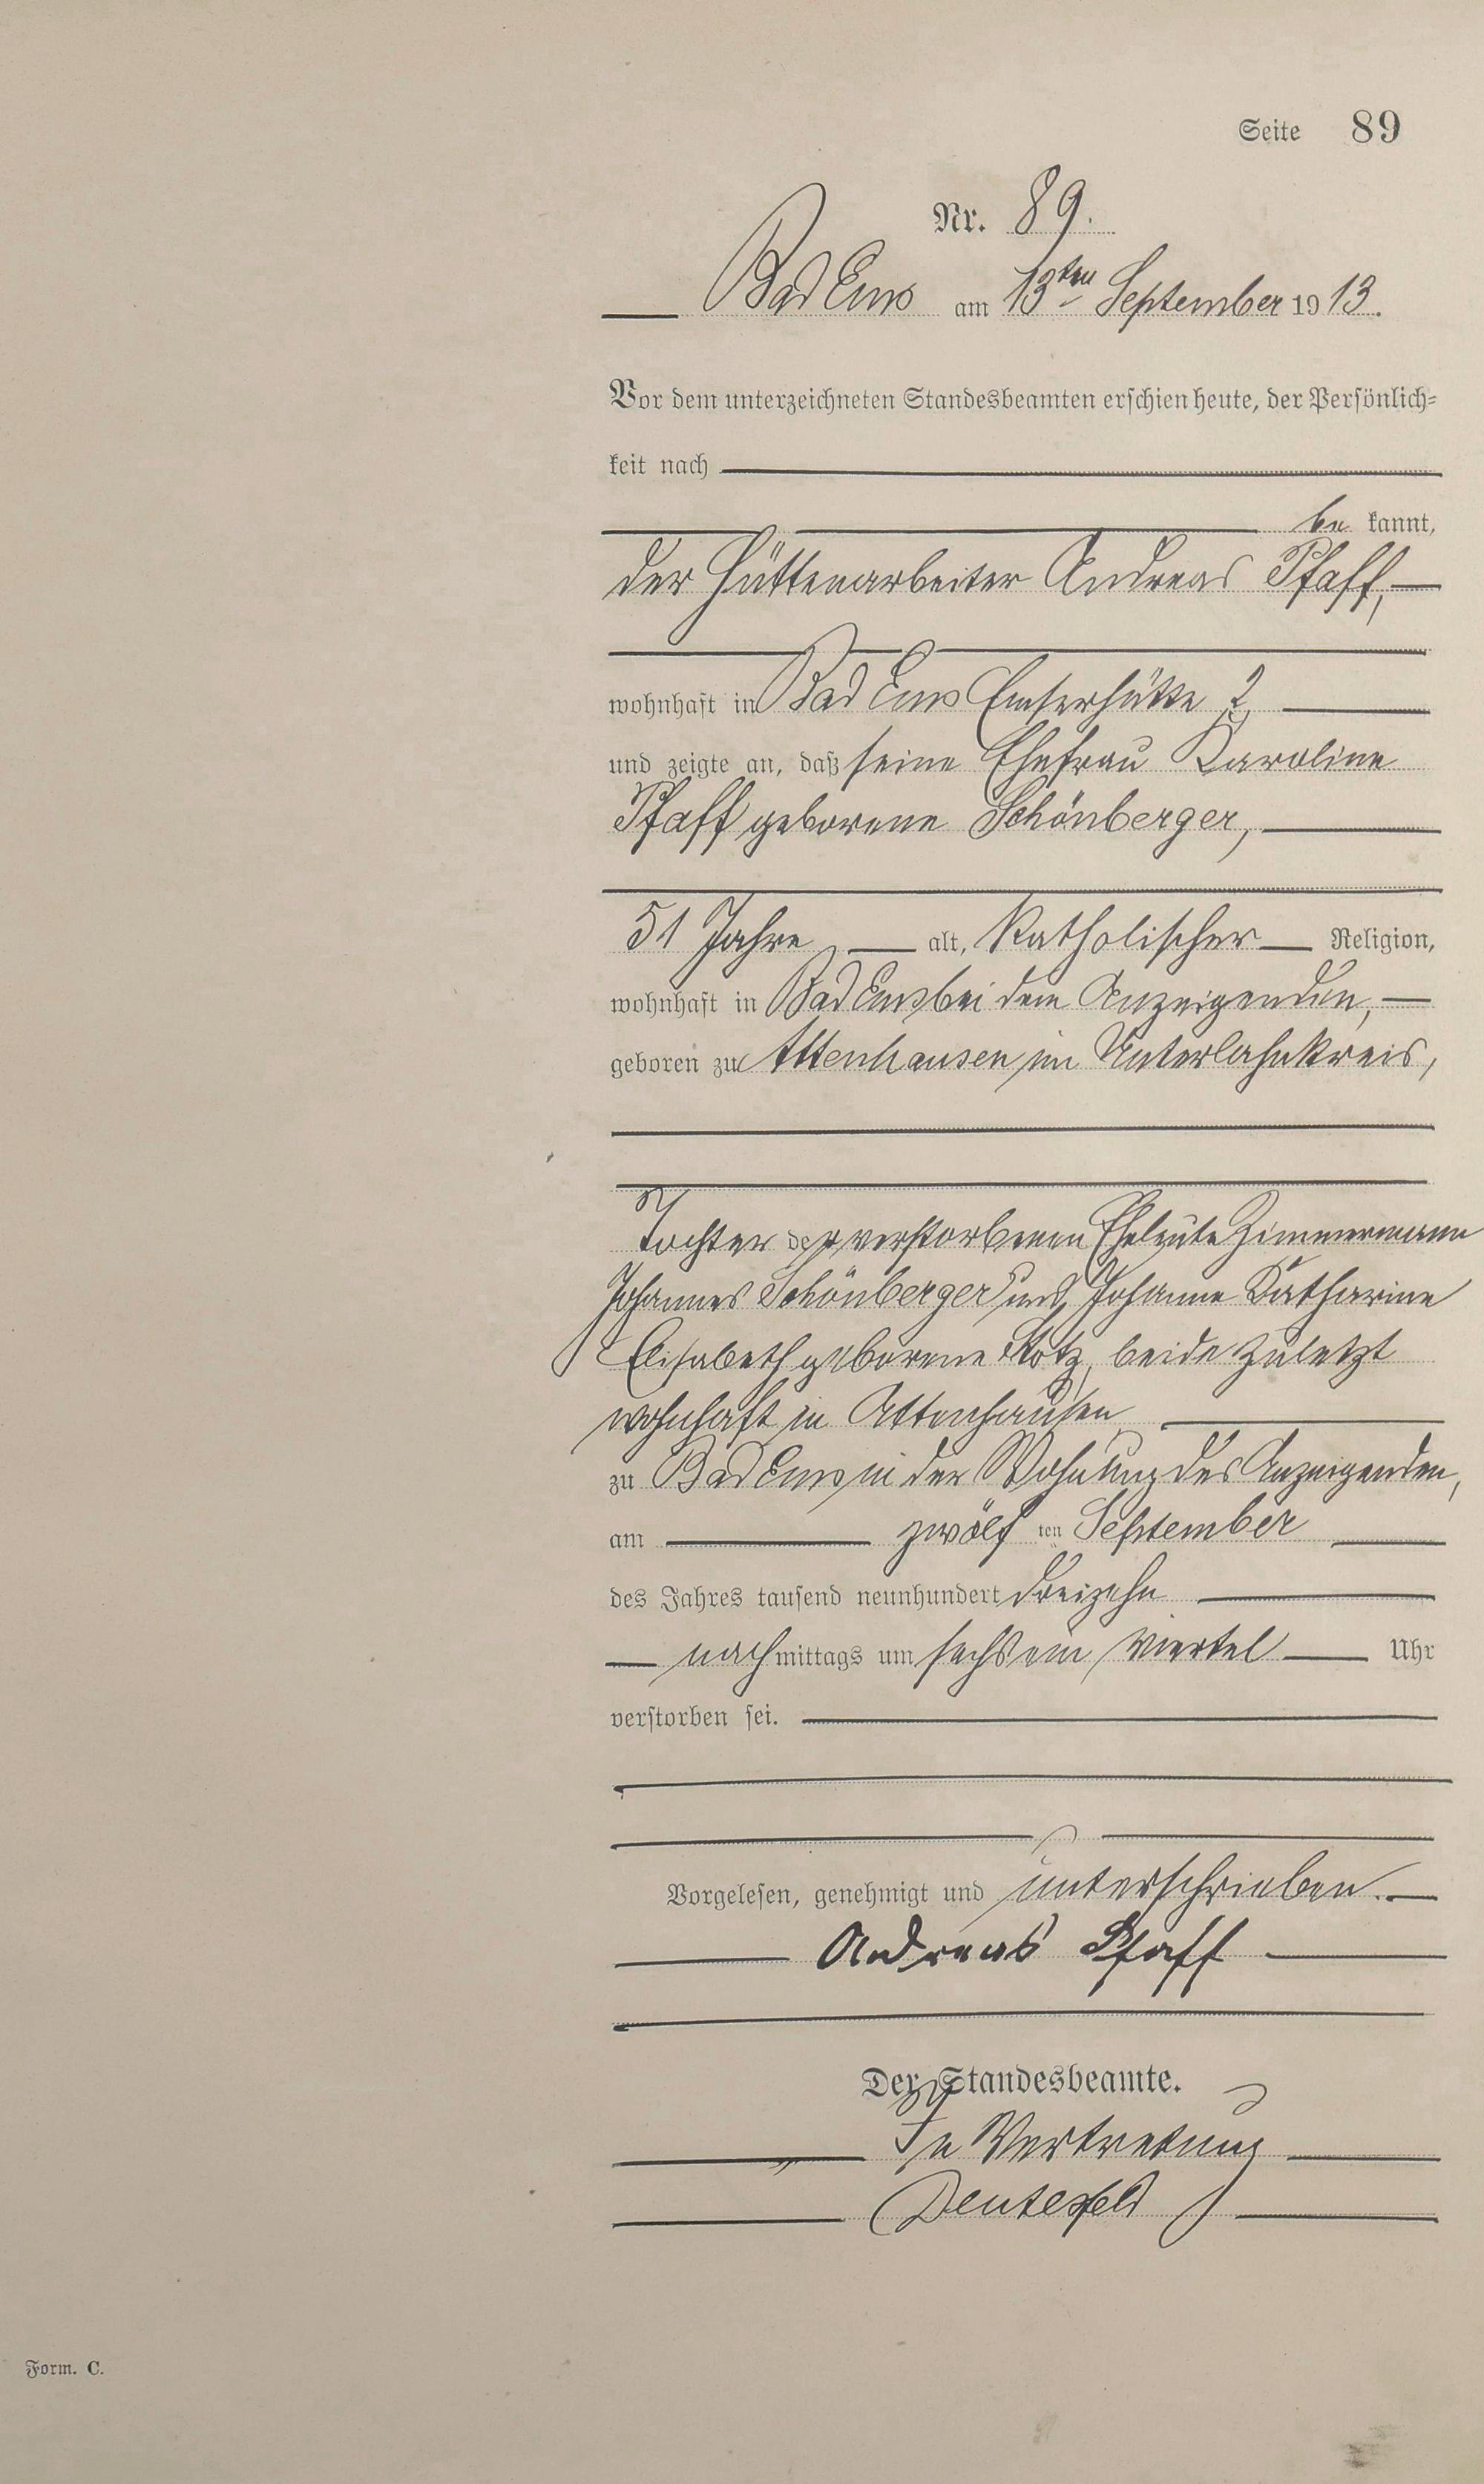 Seite 89
Nr. 89.
Bad Ems am 13ten September 1913.
Vor dem unterzeichneten Standesbeamten erschien heute, der Persönlich-
keit nach
be kannt,
der Hüttenarbeiter Andreas Pfaff,
wohnhaft in Bad Ems Emserhütte 2,
und zeigte an, daß seine Ehefrau Karoline
Pfaff geborene Schönberger,
51 Jahre alt, Katholischer Religion,
wohnhaft in Bad Ems bei dem Anzeigenden,
geboren zu Attenhausen im Unterlahnkreis,
Tochter der verstorbenen Eheleute Zimmermann
Johannes Schönberger und Johanne Katharine
Elisabeth geborene beide zuletzt
wohnhaft in Attenhausen
zu Bad Ems in der Wohnung des Anzeigenden,
am zwölf ten September
des Jahres tausend neunhundert dreizehn
nachmittags um sechs ein viertel Uhr
verstorben sei.
Vorgelesen, genehmigt und unterschrieben.
Andreas Pfaff
Der Standesbeamte.
In Vertretung
Form. C.